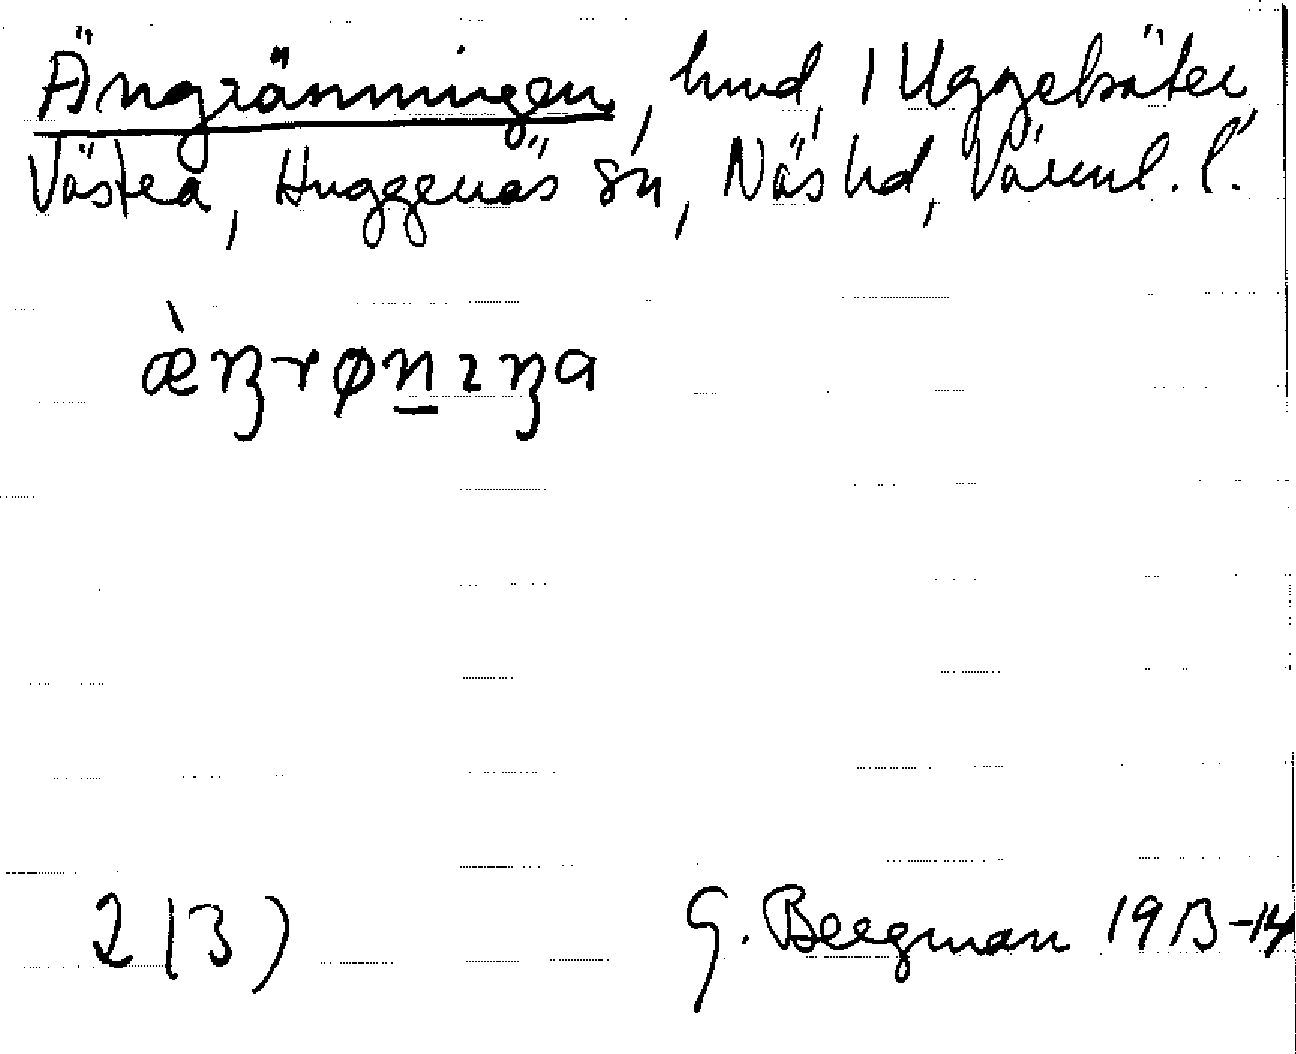 Ängränningen, hmd, 1 Uggelsäter
Västra, Huggenäs sn, Näs hd, Värml. l.
æ̀ŋrøn̲ıŋa
2(3)
G. Bergman 1913-14